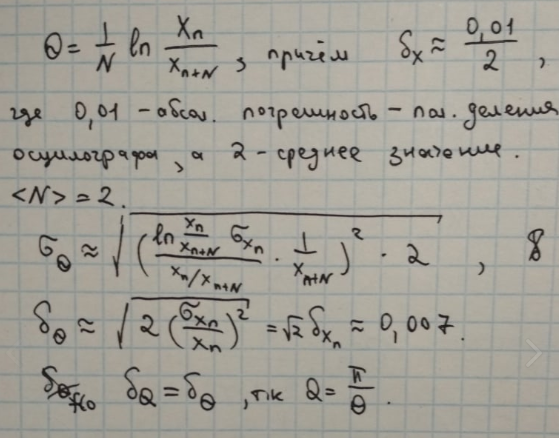 Θ = 1/N ln x_n/x_{n+N}, причём δ_x ≈ 0,01/2,
где 0,01 - абсол. погрешность - пол. деления
осцилографа, а 2 - среднее значение.
<N> = 2.
σ_Θ ≈ √((ln x_n/x_{n+N} σ_{x_n} / (x_n/x_{n+N}) · 1/x_{n+N})² · 2),
δ_Θ ≈ √(2 (σ_{x_n}/x_n)²) = √2 δ_{x_n} ≈ 0,007.
δ_Q = δ_Θ, т.к Q = π/Θ.